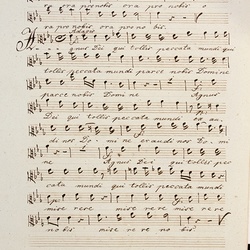 ora pro nobis ora pro nobis o
ra pro nobis ora pro no bis.
Adagio
Agnus Dei qui tollis peccata mundi qui
tollis peccata mundi parce nobis Domine
parce nobis Domine Agnus
Dei qui tollis peccata mundi ex au
di nos Do mi ne ex audi nos Do mi
ne Agnus Dei qui tollis pec
cata mundi qui tollis peccata mundi
mise rere mise rere mise rere
no bis mise re re no bis